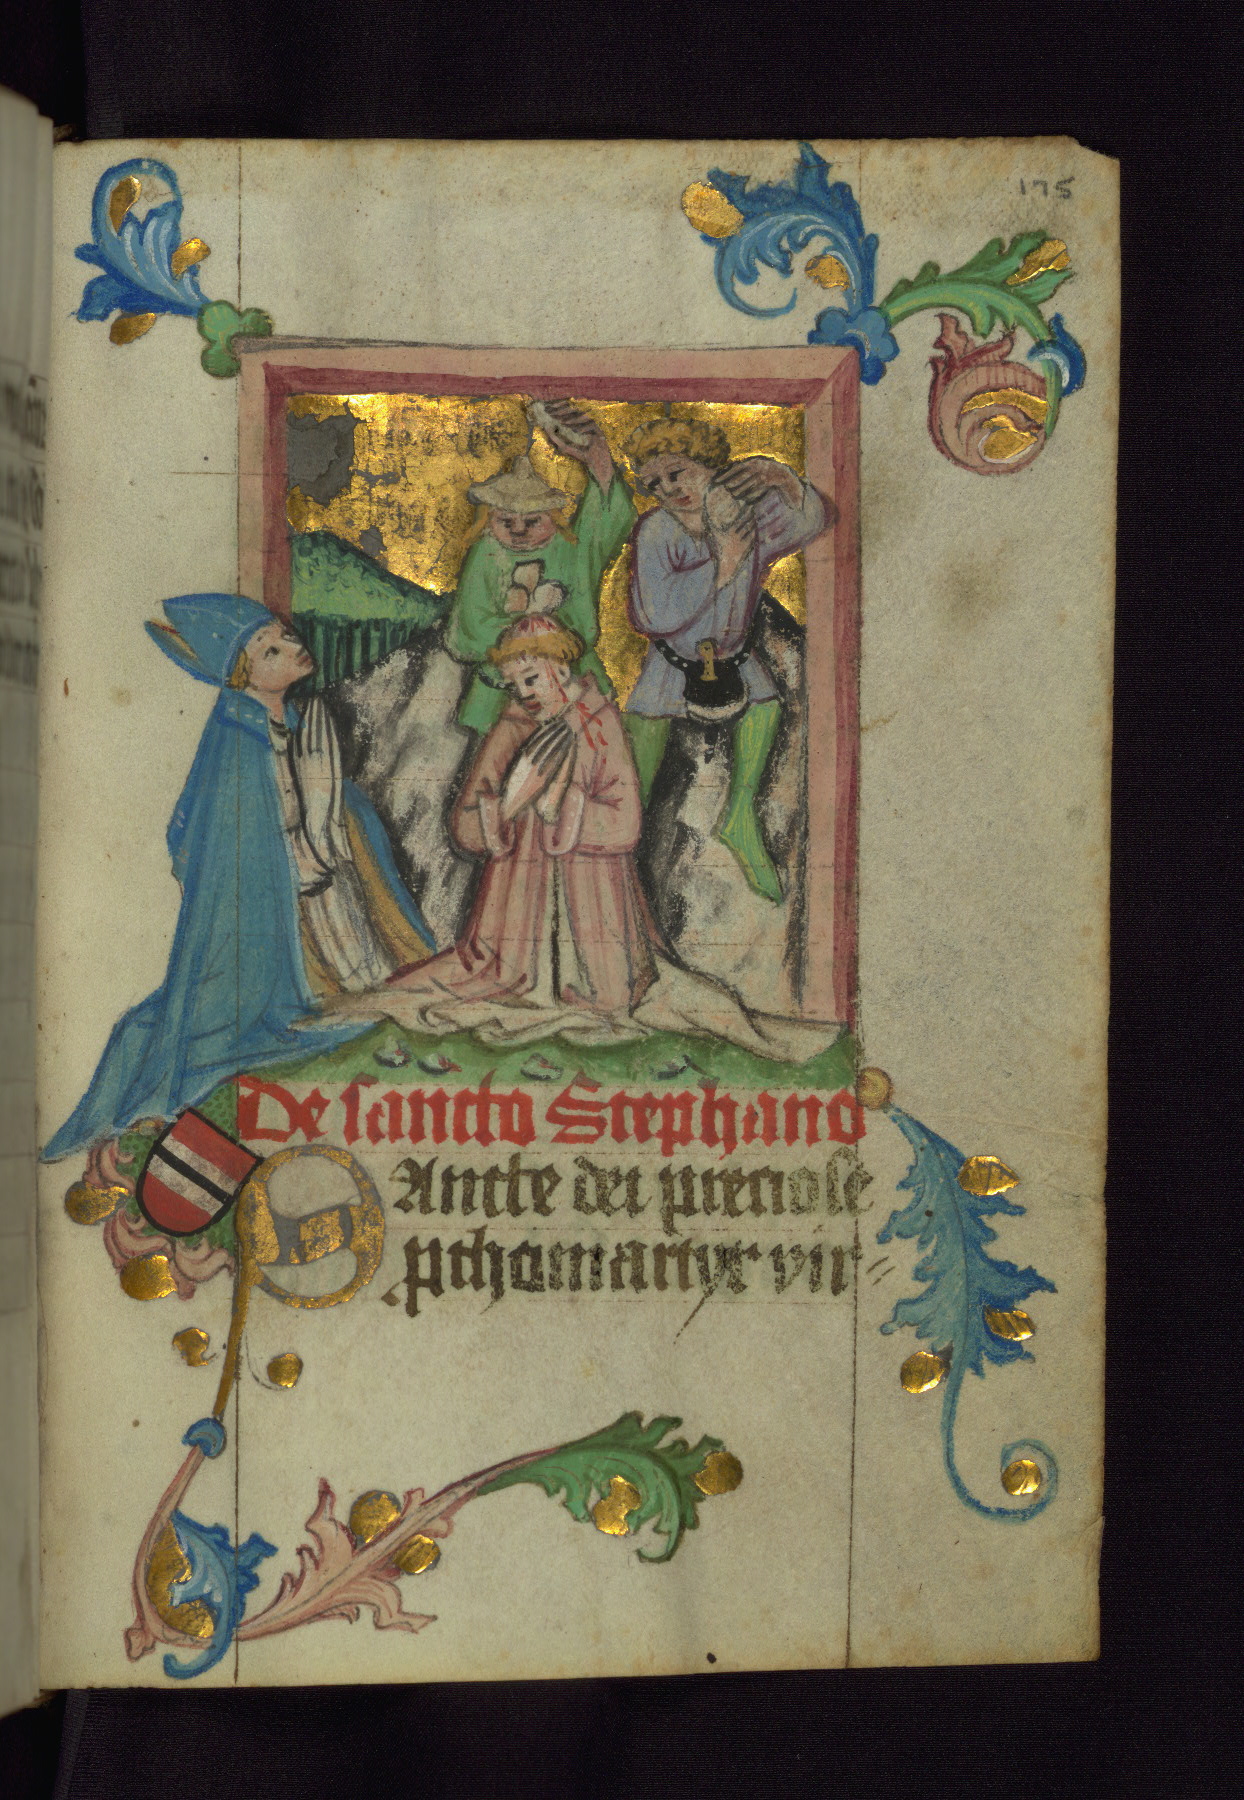 175
De sancto Stephano
SAncte dei preciose
pthomartyr vir⸗